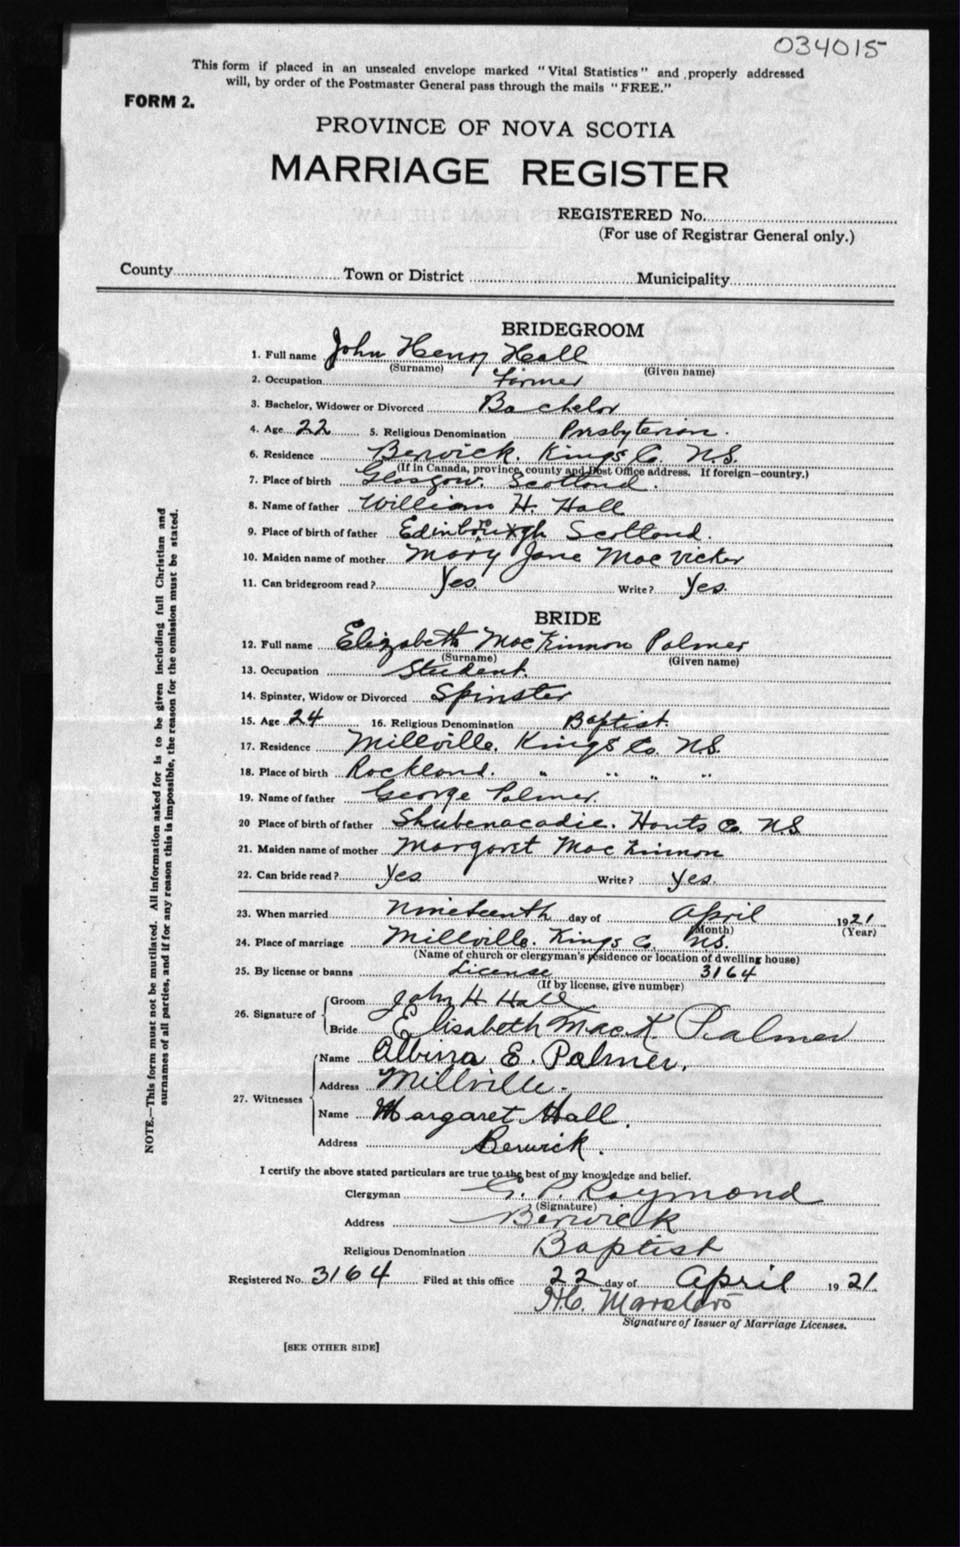 034015
This form if placed in an unsealed envelope marked "Vital Statistics" and properly addressed
will, by order of the Postmaster General pass through the mails "FREE."
FORM 2.
PROVINCE OF NOVA SCOTIA
MARRIAGE REGISTER
REGISTERED No.
(For use of Registrar General only.)
County Town or District Municipality
BRIDEGROOM
1. Full name John Henry Hall
(Surname) (Given name)
2. Occupation Farmer
3. Bachelor, Widower or Divorced Bachelor
4. Age 22 5. Religious Denomination Presbyterian.
6. Residence Berwick. Kings Co. N.S.
(If in Canada, province, county and Post Office address. If foreign—country.)
7. Place of birth Glasgow. Scotland.
8. Name of father William H. Hall
9. Place of birth of father Edinburgh Scotland.
10. Maiden name of mother Mary Jane MacVicker
11. Can bridegroom read? Yes. Write? Yes.
BRIDE
12. Full name Elizabeth MacKinnon Palmer
(Surname) (Given name)
13. Occupation Student.
14. Spinster, Widow or Divorced Spinster
15. Age 24 16. Religious Denomination Baptist.
17. Residence Millville. Kings Co. N.S.
18. Place of birth Rockland. " " " "
19. Name of father George Palmer.
20 Place of birth of father Shubenacadie. Hants Co. N.S
21. Maiden name of mother Margaret MacKinnon
22. Can bride read? Yes Write? Yes.
23. When married Nineteenth day of April 1921
(Month) (Year)
24. Place of marriage Millville. Kings Co. N.S.
(Name of church or clergyman's residence or location of dwelling house)
25. By license or banns License 3164
(If by license, give number)
26. Signature of Groom John H Hall
Bride Elisabeth MacK Palmer
27. Witnesses Name Albina E. Palmer.
Address Millville.
Name Margaret Hall.
Address Berwick.
I certify the above stated particulars are true to the best of my knowledge and belief.
Clergyman G. P. Raymond
(Signature)
Address Berwick
Religious Denomination Baptist
Registered No. 3164 Filed at this office 22 day of April 1921.
H.C. Marsters
Signature of Issuer of Marriage Licenses.
[SEE OTHER SIDE]
NOTE.—This form must not be mutilated. All information asked for is to be given including full Christian and
surnames of all parties, and if for any reason this is impossible, the reason for the omission must be stated.